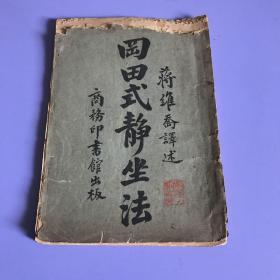 蔣維喬譯述
岡田式靜坐法
商務印書館出版